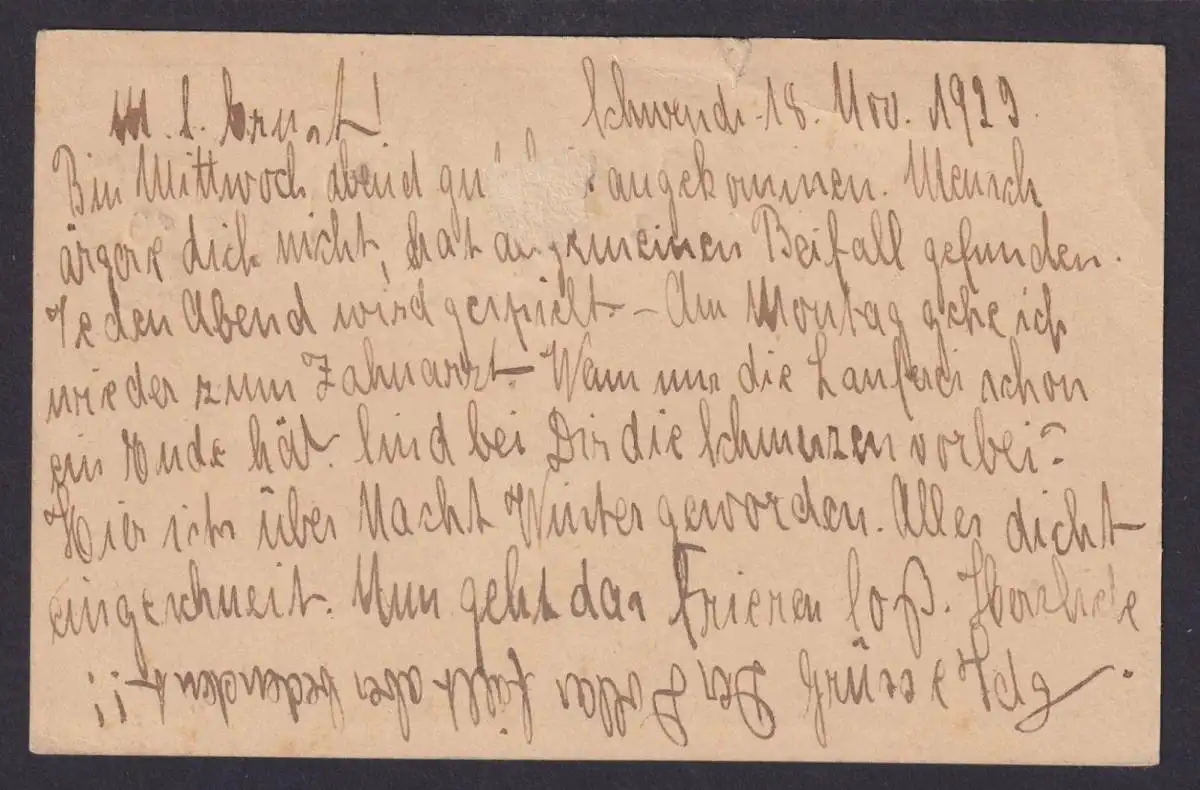 M. l. Ernst!
Schwendi 18. Nov. 1923.
Bin Mittwoch abend gut angekommen. Mensch
ärgere dich nicht, hat allgemeinen Beifall gefunden.
Jeden Abend wird gespielt. – Am Montag gehe ich
wieder zum Zahnarzt. Wenn nur die Lauferei schon
ein Ende hät. Sind bei Dir die Schmerzen vorbei?
Hier ists über Nacht Winter geworden. Alles dicht
eingeschneit. Nun geht das Frieren loß. Herzliche
Grüsse
Der Dollar fällt aber bedeutend!!